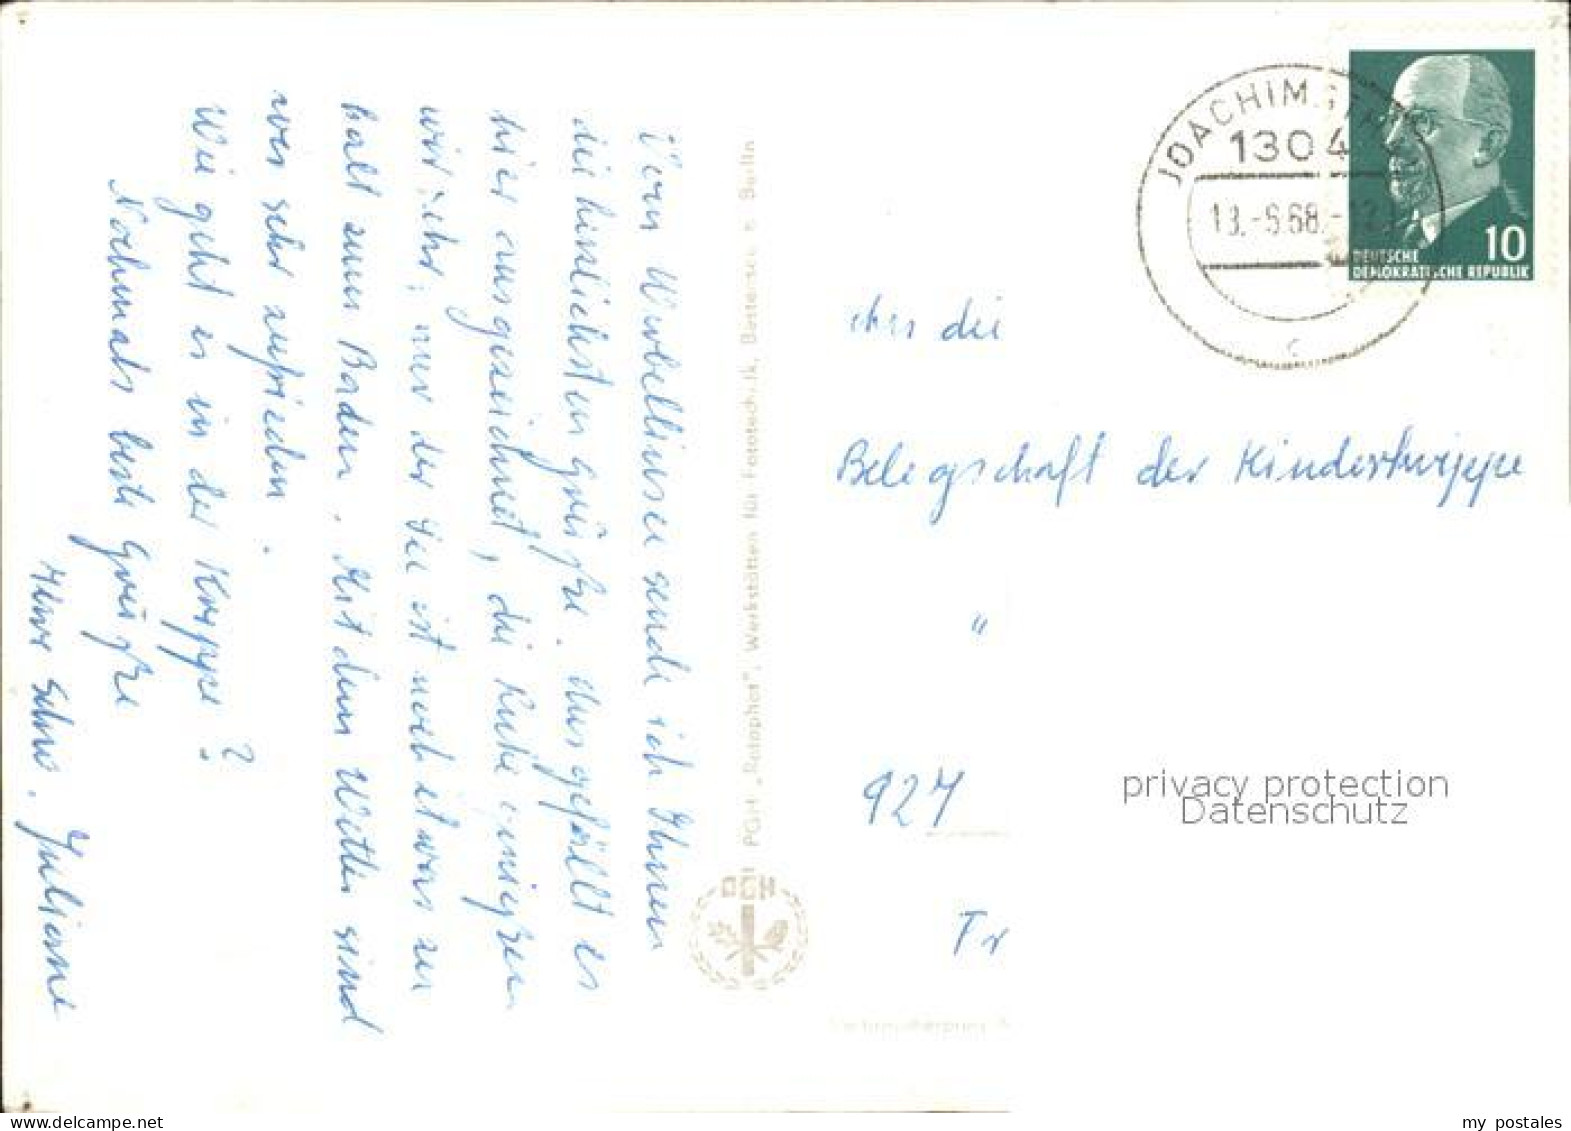 Vom Werbellinsee sende ich Ihnen
die herzlichsten Grüße. Uns gefällt es
hier ausgezeichnet, die Ruhe genießen
wir sehr, nur der See ist noch etwas zu
kalt zum Baden. Mit dem Wetter sind
wir sehr zufrieden.
Wie geht es in der Krippe?
Nochmals beste Grüße
Ihre Schw. Juliane
PGH „Rotophot", Werkstätten für Fototechnik, Bestensee b. Berlin
JOACHIMSTHAL
1304
13.-6.68.-12
c
10
DEUTSCHE
DEMOKRATISCHE REPUBLIK
An die
Belegschaft der Kinderkrippe
"
927
Fr
privacy protection
Datenschutz
my postales